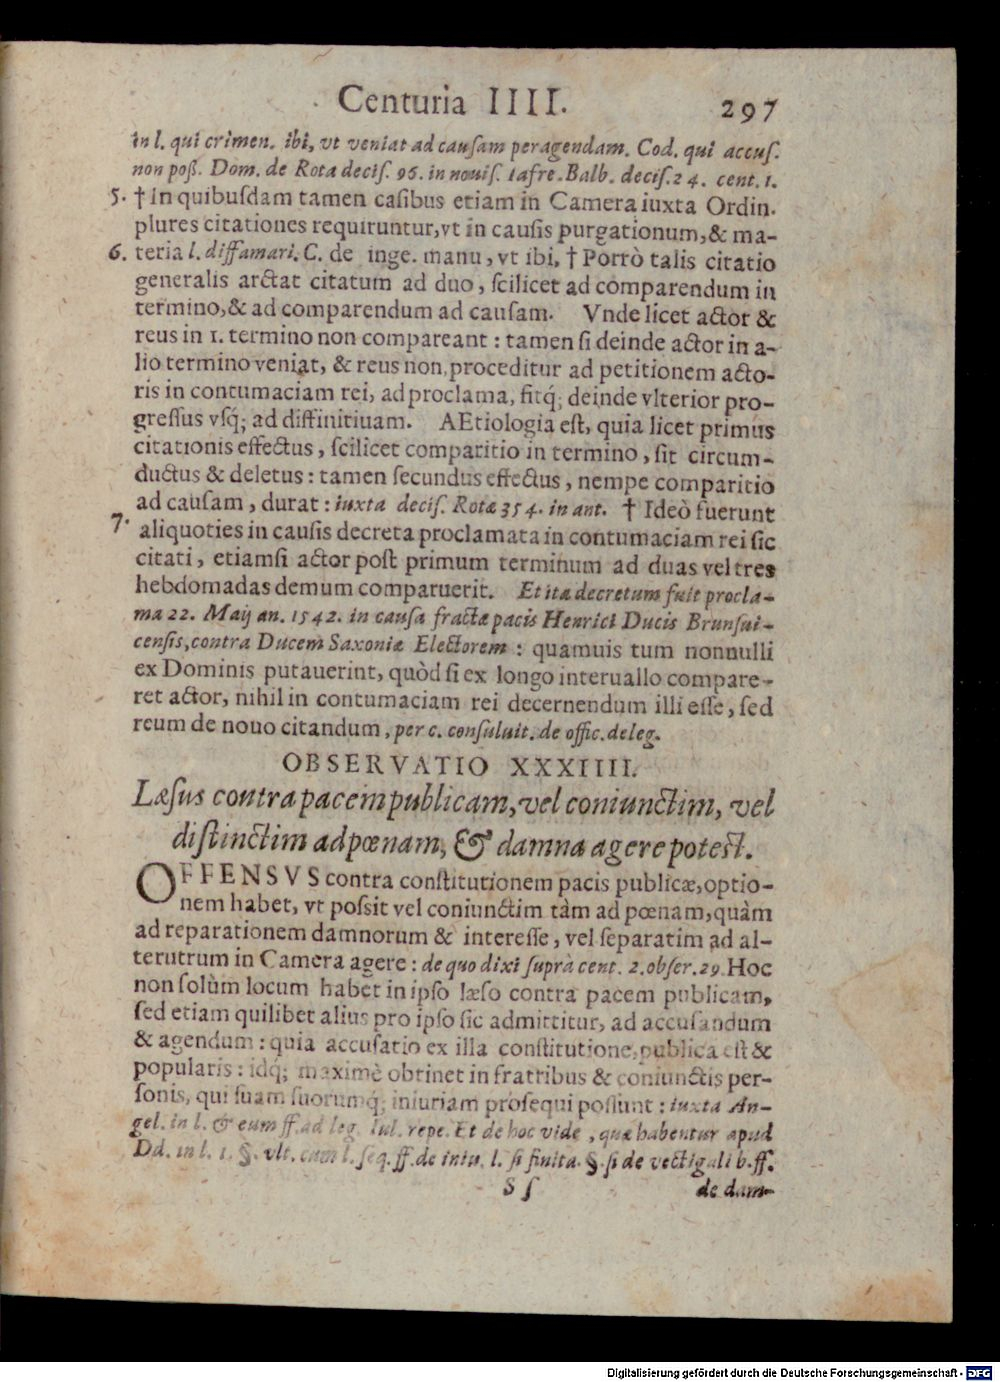 Centuria IIII. 297
in l. qui crimen. ibi, vt veniat ad cauſam peragendam. Cod. qui accuſ.
non poß. Dom. de Rota deciſ. 96. in nouiſ. Iafre. Balb. deciſ. 24. cent. 1.
5. † In quibuſdam tamen caſibus etiam in Camera iuxta Ordin.
plures citationes requiruntur, vt in cauſis purgationum, & ma-
6. teria l. diffamari. C. de inge. manu, vt ibi, † Porrò talis citatio
generalis arctat citatum ad duo, ſcilicet ad comparendum in
termino, & ad comparendum ad cauſam. Vnde licet actor &
reus in 1. termino non compareant : tamen ſi deinde actor in a-
lio termino veniat, & reus non, proceditur ad petitionem acto-
ris in contumaciam rei, ad proclama, fitq́; deinde vlterior pro-
greſſus vſq́; ad diffinitiuam. AEtiologia eſt, quia licet primus
citationis effectus, ſcilicet comparitio in termino, ſit circum-
ductus & deletus : tamen ſecundus effectus, nempe comparitio
ad cauſam, durat : iuxta deciſ. Rotæ 354. in ant. † Ideò fuerunt
7. aliquoties in cauſis decreta proclamata in contumaciam rei ſic
citati, etiamſi actor poſt primum terminum ad duas vel tres
hebdomadas demum comparuerit. Et ita decretum fuit procla-
ma 22. Maij an. 1542. in cauſa fractæ pacis Henrici Ducis Brunſui-
cenſis, contra Ducem Saxoniæ Electorem : quamuis tum nonnulli
ex Dominis putauerint, quòd ſi ex longo interuallo compare-
ret actor, nihil in contumaciam rei decernendum illi eſſe, ſed
reum de nouo citandum, per c. conſuluit. de offic. deleg.
OBSERVATIO XXXIIII.
Læſus contra pacem publicam, vel coniunctim, vel
diſtinctim ad pœnam, & damna agere poteſt.
OFFENSVS contra conſtitutionem pacis publicæ, optio-
nem habet, vt poſsit vel coniunctim tàm ad pœnam, quàm
ad reparationem damnorum & intereſſe, vel ſeparatim ad al-
terutrum in Camera agere : de quo dixi ſuprà cent. 2. obſer. 29. Hoc
non ſolùm locum habet in ipſo læſo contra pacem publicam,
ſed etiam quilibet alius pro ipſo ſic admittitur, ad accuſandum
& agendum : quia accuſatio ex illa conſtitutione, publica eſt &
popularis : idq́; maximè obtinet in fratribus & coniunctis per-
ſonis, qui ſuam ſuorumq́; iniuriam proſequi poſſunt : iuxta An-
gel. in l. & eum ff. ad leg. Iul. repe. Et de hoc vide, quæ habentur apud
Dd. in l. 1. §. vlt. cum l. ſeq. ff. de iniu. l. ſi finita. §. ſi de vectigalib. ff.
S ſ de dam-
Digitalisierung gefördert durch die Deutsche Forschungsgemeinschaft - DFG